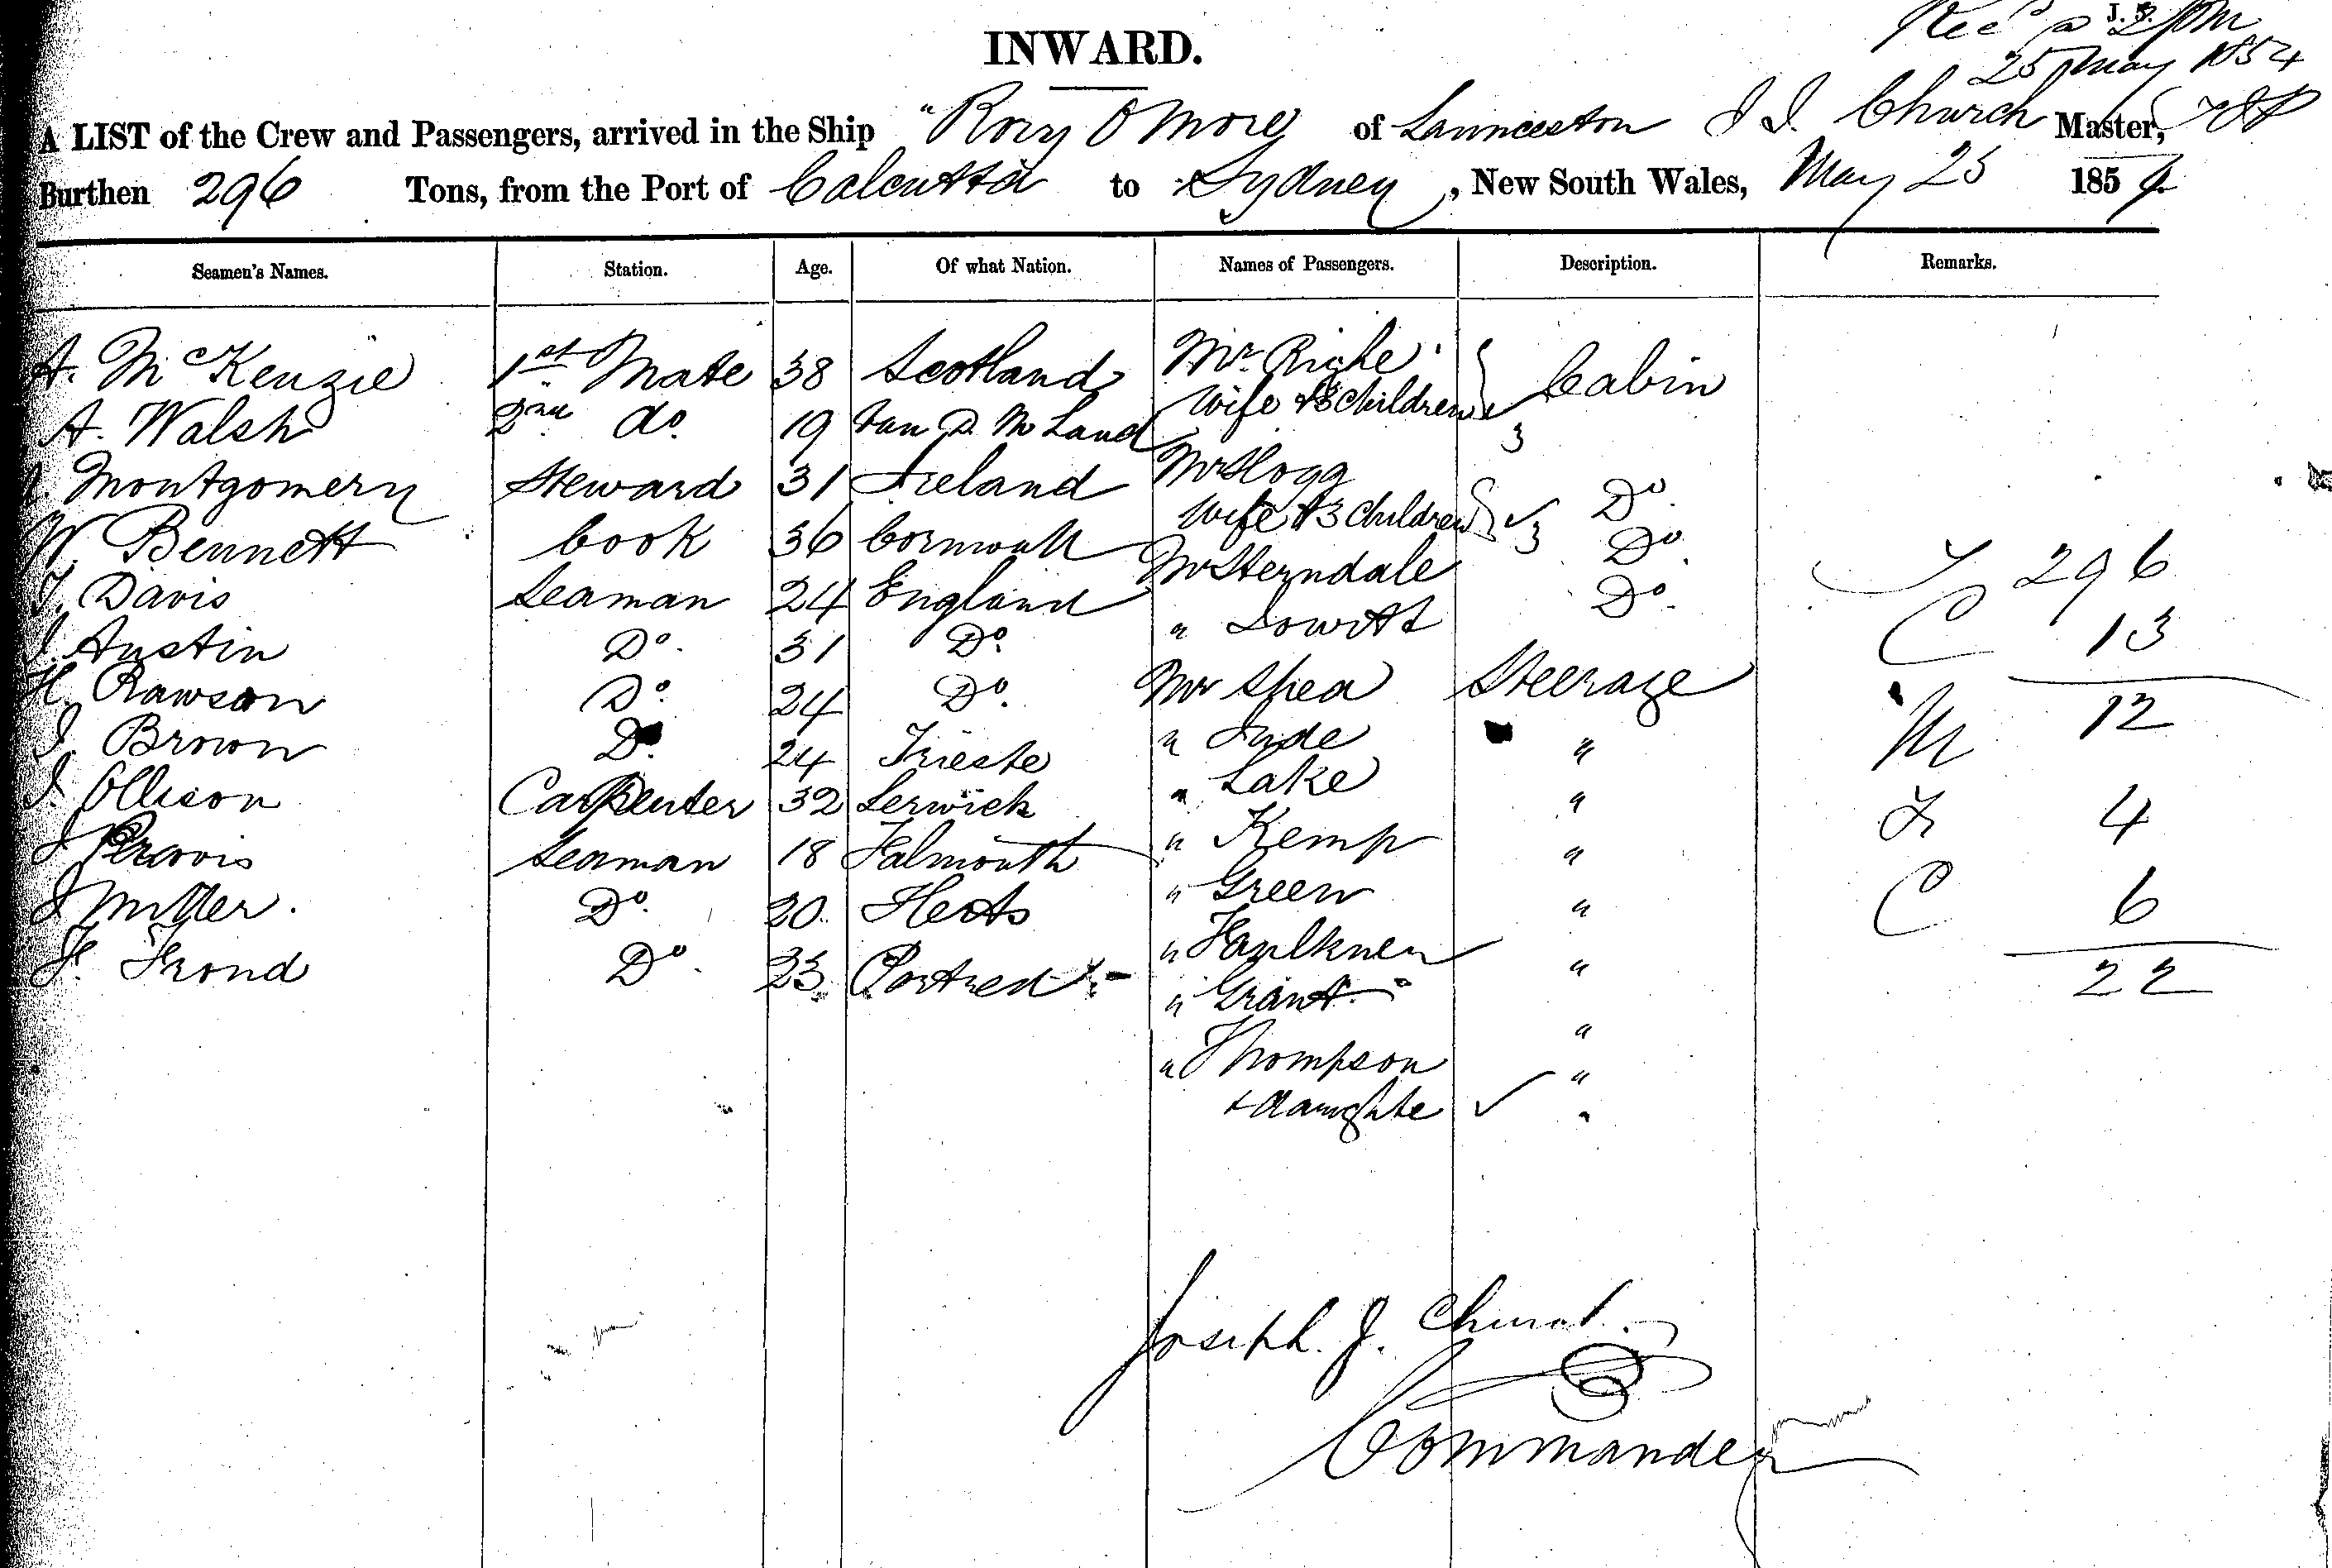 Recd @ 2 PM
J. S.
25 May 1854
INWARD.
A LIST of the Crew and Passengers, arrived in the Ship "Rory O More of Launceston J J. Church Master,
Burthen 296 Tons, from the Port of Calcutta to Sydney, New South Wales, May 25 1854
Seamen's Names. Station. Age. Of what Nation. Names of Passengers. Description. Remarks.
A. McKenzie 1st Mate 38 Scotland Mr Righe Cabin
A. Walsh 2nd do. 19 Van D. M Land Wife & 3 Children 3
Montgomery Steward 31 Ireland Mr Hogg Do
W. Bennett Cook 36 Cornwall Wife & 3 Children 3 Do
T. Davis Seaman 24 England Mr Sterndale Do
J. Austin Do. 31 Do. " Lowett
H. Rawson Do. 24 Do. Mr Shea Steerage
J. Brown Do. 24 Trieste " Jude "
J. Ollison Carpenter 32 Lerwick " Lake "
J Pearvis Seaman 18 Falmouth " Kemp "
J Miller. Do. 20. Herts " Green "
F. Frond Do. 23. Portreath " Faulkner "
" Grant "
" Thompson "
& daughte "
T 296
C 13
M 12
F 4
C 6
22
Joseph. J. Church
Commander